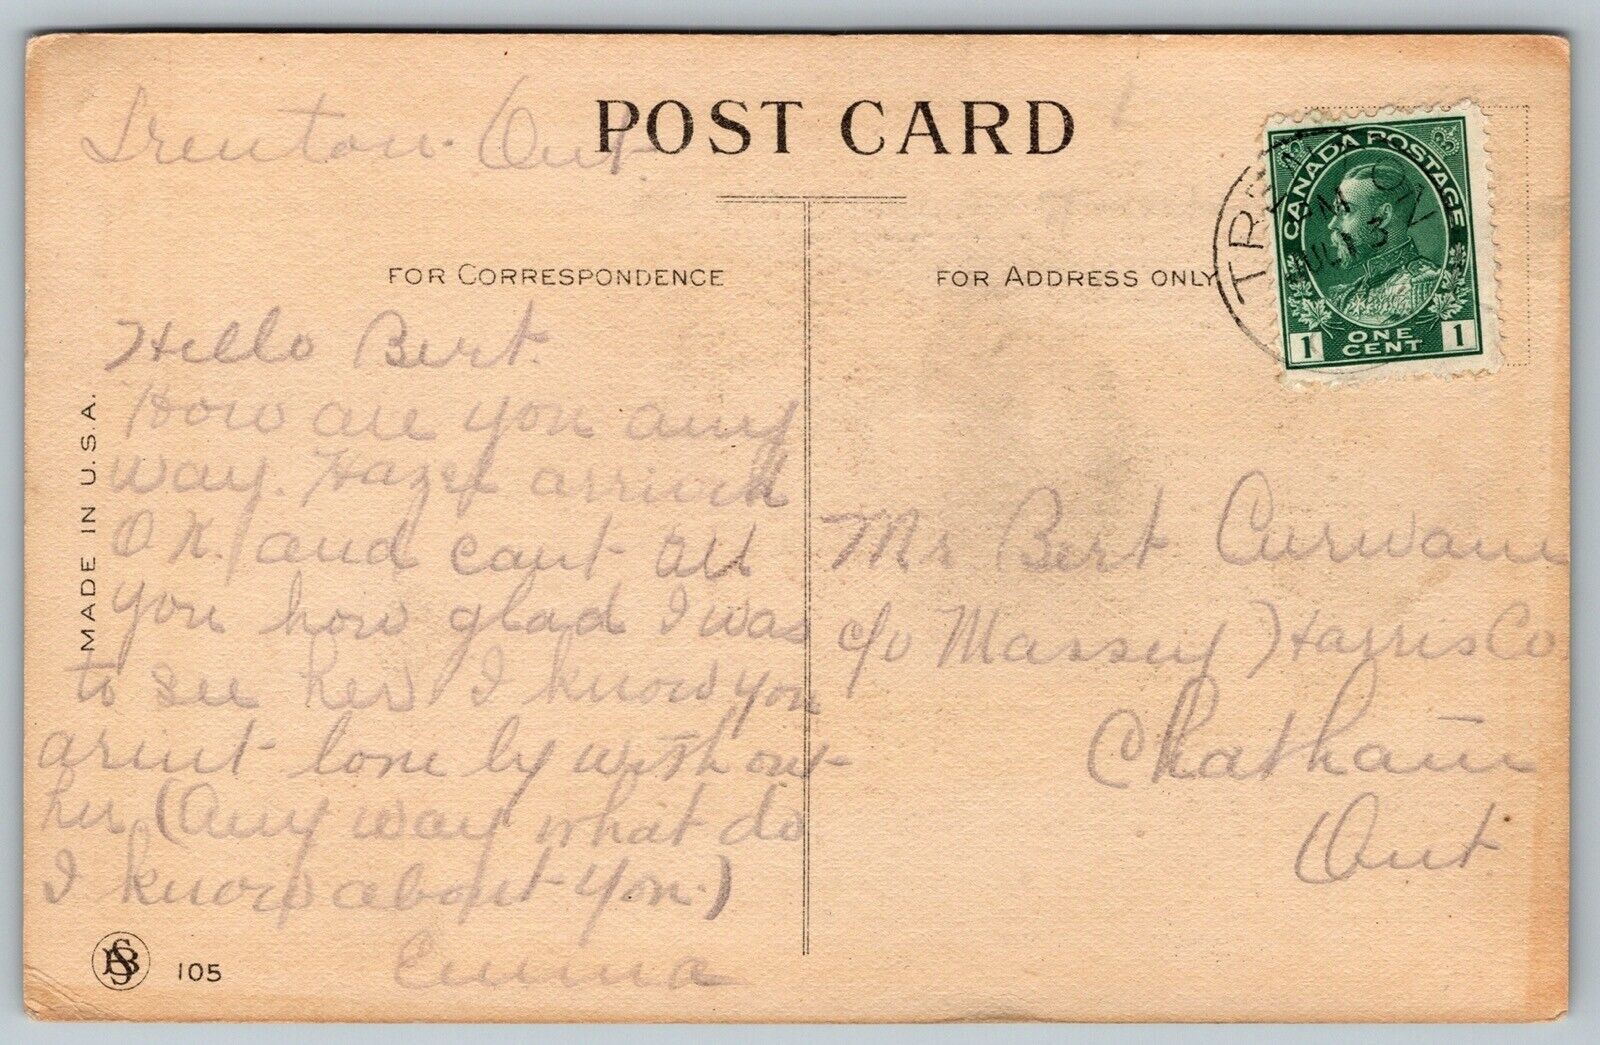 Trenton. Ont.
POST CARD
CANADA POSTAGE
1 ONE CENT 1
TRENTON ON
PM
JUL 13
FOR CORRESPONDENCE
FOR ADDRESS ONLY
MADE IN U.S.A.
Hello Bert.
How are you any
way. Hazel arrived
OK. and cant tell
you how glad I was
to see her I know you
arint lone ly with out
her (Any way what do
I know about You.)
Emma
Mr Bert Curwain
c/o Massey Harris Co
Chatham
Ont.
105